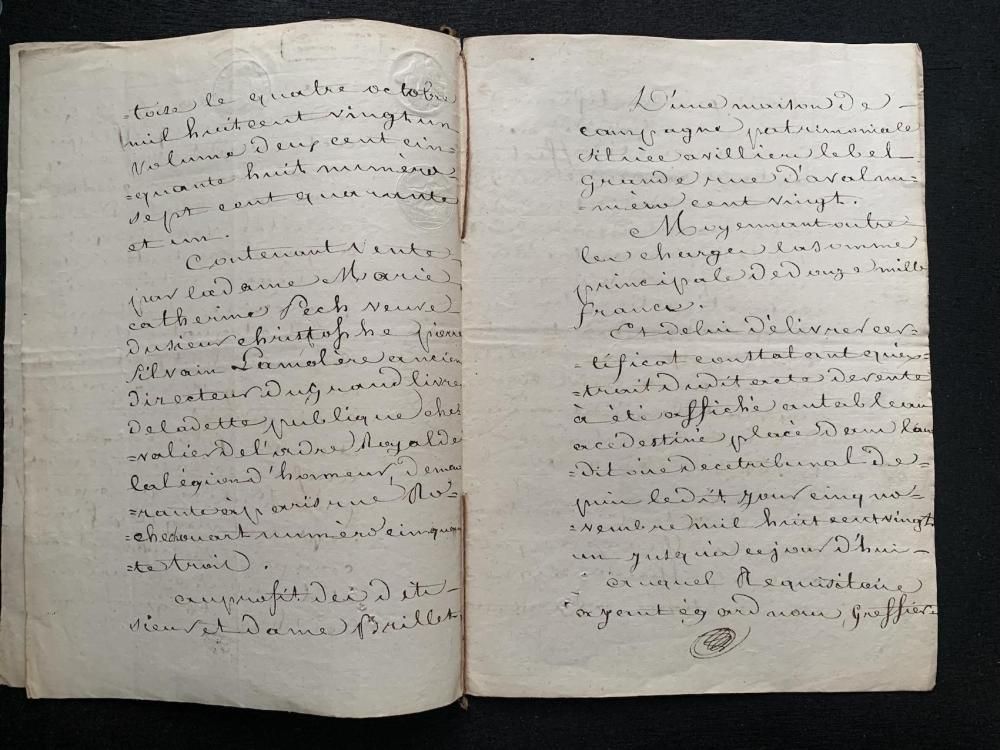 toise le quatre octobre
mil huit cent vingt un
volume deux cent cin=
=quante huit numéro
sept cent quarante
et un.
Contenant vente
par la dame Marie
catherine Pech veuve
du sieur christophe pierre
silvain Lamolère ancien
directeur du grand livre
de la dette publique chev
=valier de l'ordre Royal de
la légion d'honneur, demeu
=rante à paris rue Ro=
=chechouart numéro cinquan
=te trois.
au profit des dits
sieur et dame Brillet
D'une maison de
campagne patrimoniale
située a villiers le bel
grande rue d'aval nu=
=méro cent vingt.
Moyennant outre
les charges la somme
principale de douze mille
francs.
Et de lui délivrer cer=
=tificat constatant qu'ex=
=trait dudit acte de vente
à été affiché au tableau
a ce destiné placé dans l'au
=ditoire de ce tribunal de=
=puis le dit jour cinq no=
=vembre mil huit cent vingt
un jusqu'à ce jour d'hui
auquel Requisitoire
ayant égard nous, Greffier